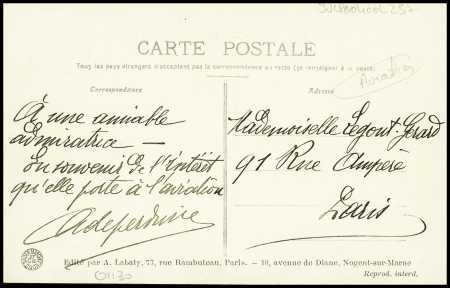 SJL8004006257
CARTE POSTALE
Tous les pays étrangers n'acceptent pas la correspondance au recto (se renseigner à la poste)
Aviation
Correspondance
Adresse
À une aimable
admiratrice —
En souvenir de l'intérêt
qu'elle porte à l'aviation
Adeperdussin
Mademoiselle Legout-Gérard
91 Rue Ampère
Paris
Edité par A. Labaty, 77, rue Rambuteau, Paris. — 10, avenue de Diane, Nogent-sur-Marne
Reprod. interd.
01130